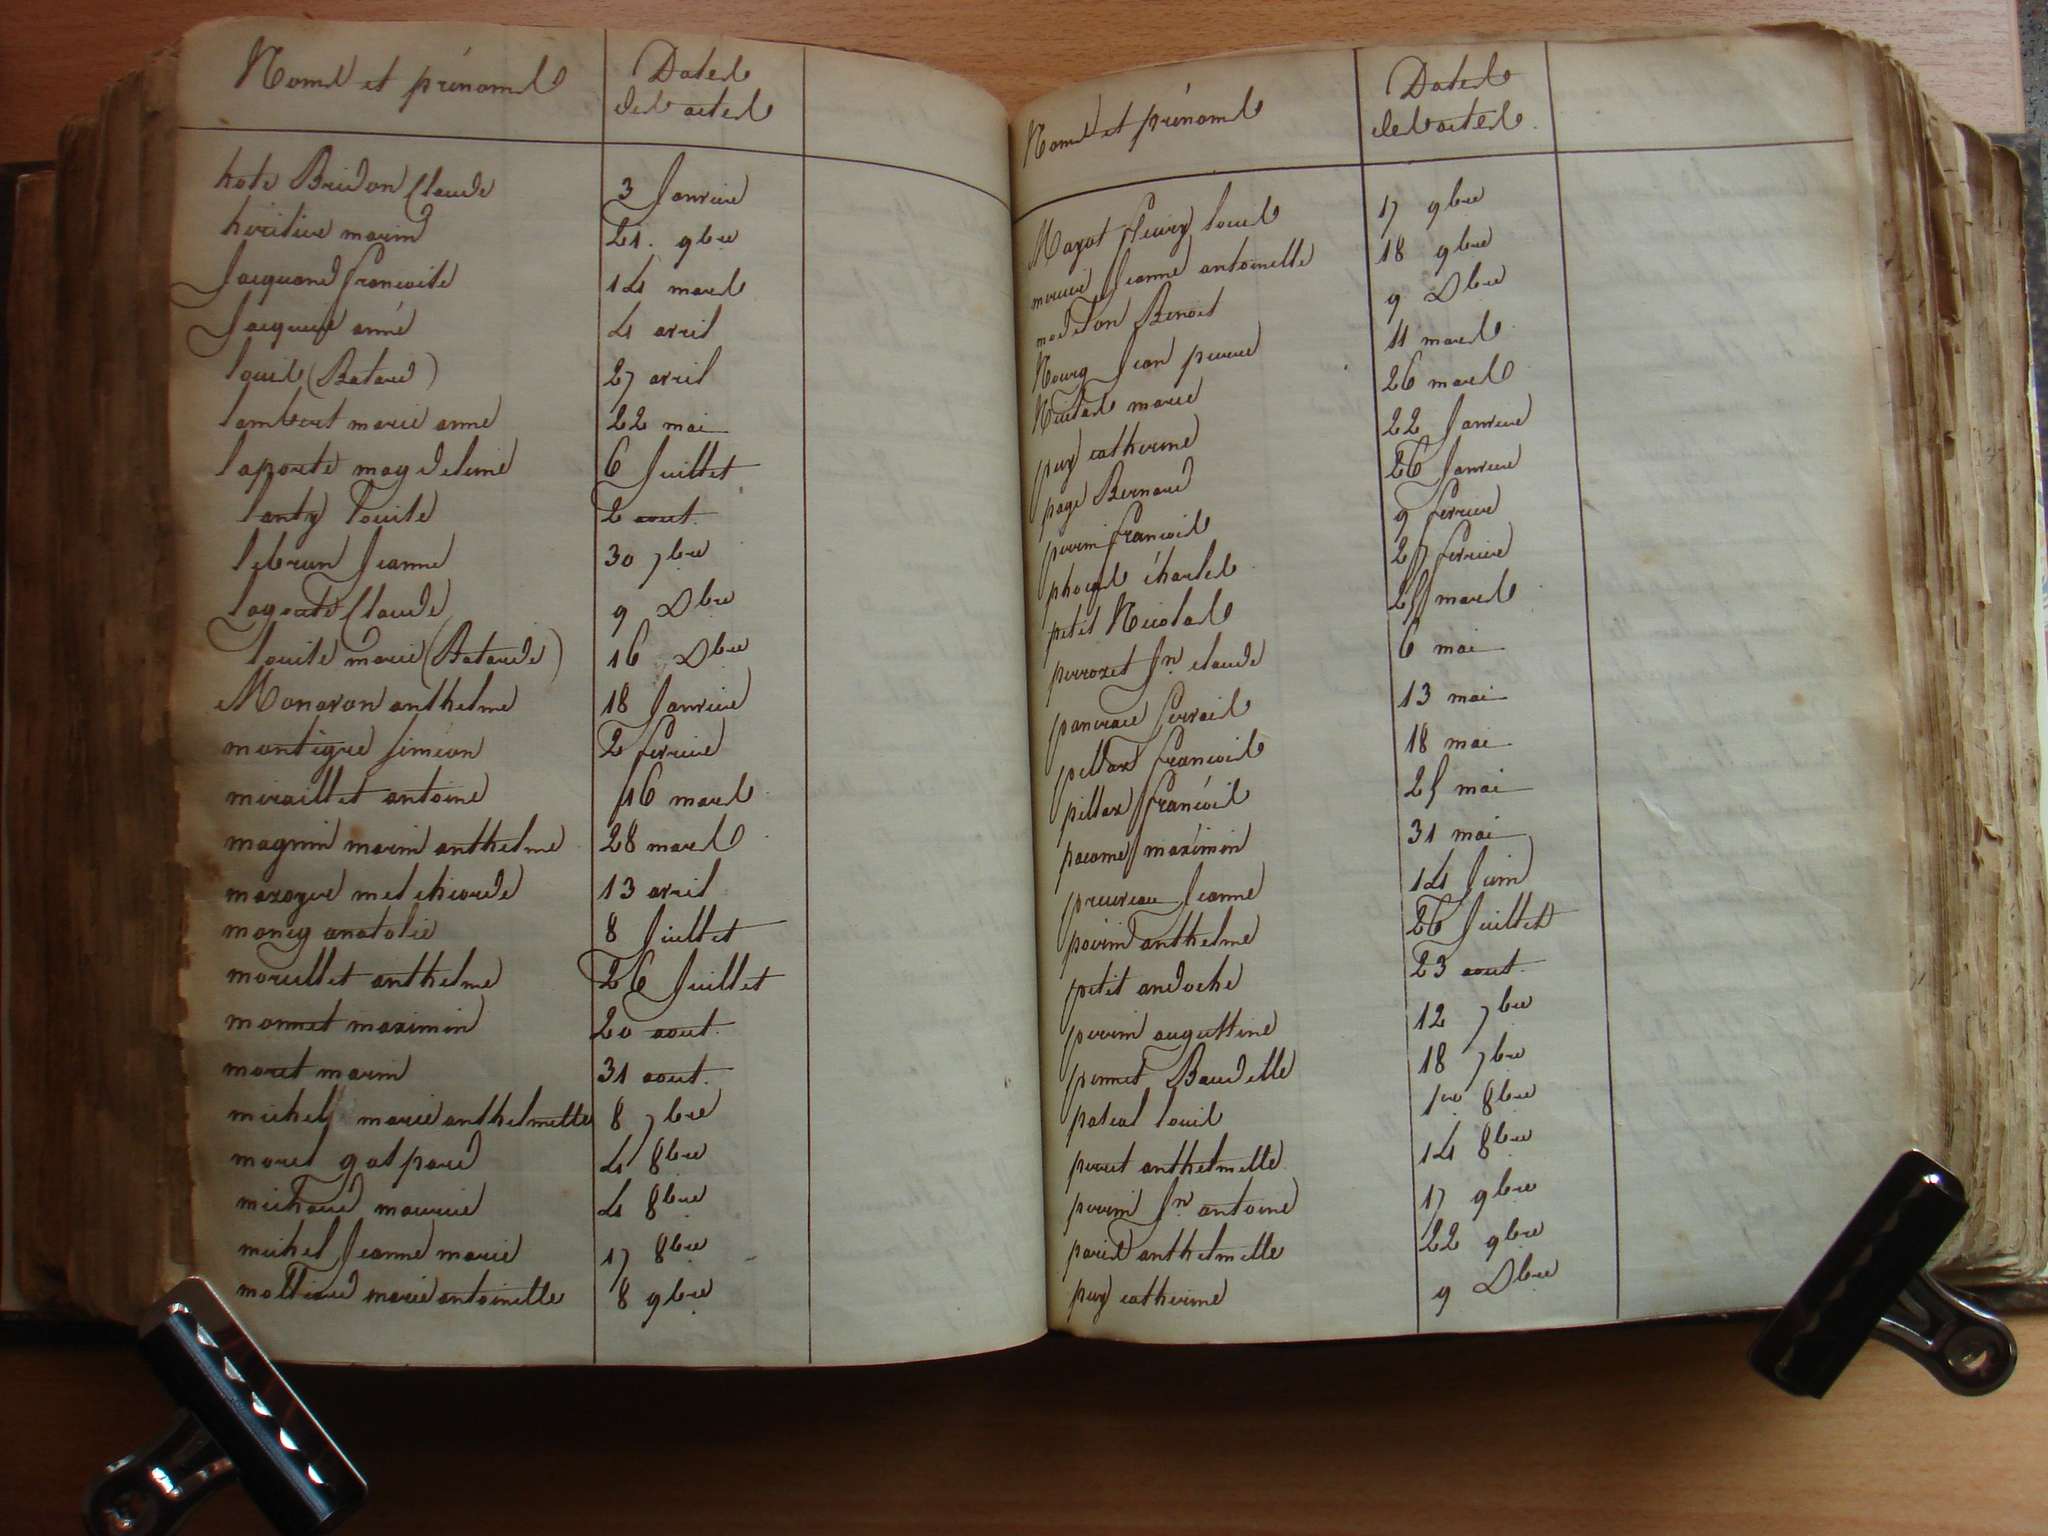 Noms et prénoms
Dates
des actes
hote Bridon Claude 3 Janvier
héritier marin 21. 9bre
Jacquand francoise 14 mars
Jacquier anne 4 avril
louis (Batard) 27 avril
lambert marie anne 22 mai
laporte magdeleine 6 Juillet
lanty louise 2 aout.
lebrun Jeanne 30 7bre
lagoute Claude 9 Dbre
louise marie (Batarde) 16 Dbre
Monavon anthelme 18 Janvier
montigre Siméon 2 fevrier
miraillet antoine 16 mars
magnin marin anthelme 28 mars
mazoyer melchiorde 13 avril
money anatolie 8 Juillet
morellet anthelme 26 Juillet
monnet maximin 20 aout.
moret marin 31 aout.
michel marie anthelmette 8 7bre
moret gaspard 4 8bre
michard maurice 4 8bre
michel Jeanne marie 17 8bre
moltiere marie antoinette 8 9bre
Noms et prénoms
Dates
des actes.
Mazot fleury louis 17 9bre
mercier Jeanne antoinette 18 9bre
Benoit 9 Dbre
Noury Jean pierre 11 mars
Nicolas marie 26 mars
puy catherine 22 Janvier
page Bernard 26 Janvier
perrin francois 9 fevrier
charles 25 fevrier
petit Nicolas 25 mars
perrozet Jn claude 6 mai
pancrace Servais 13 mai
pillaz francois 18 mai
pillaz francois 25 mai
pacome maximin 31 mai
Jeanne 14 Juin
perrin anthelme 26 Juillet
petit andoche 23 aout.
perrin augustine 12 7bre
pennet Baudille 18 7bre
pascal louis 1er 8bre
perret anthelmette 14 8bre
perrin Jn antoine 17 9bre
paris anthelmette 22 9bre
puy catherine 9 Dbre